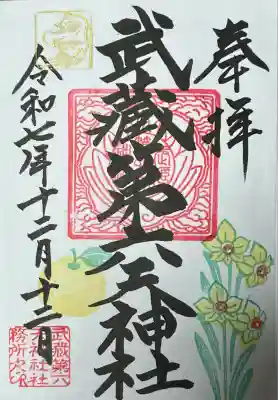 奉拝
武蔵第六天神社
令和七年十二月十三日
武蔵第六
天神社社
務所之印